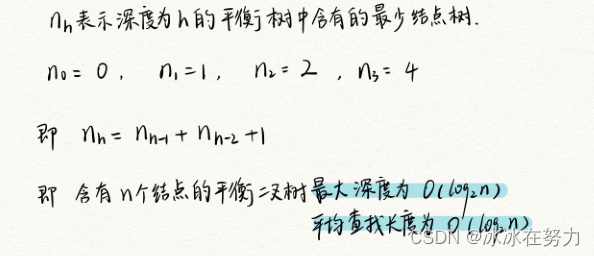 nh表示深度为h的平衡树中含有的最少结点树.
n0=0, n1=1, n2=2, n3=4
即 nh=nh-1+nh-2+1
即 含有n个结点的平衡二叉树最大深度为 O(log2n)
平均查找长度为 O(log2n)
CSDN @冰冰在努力